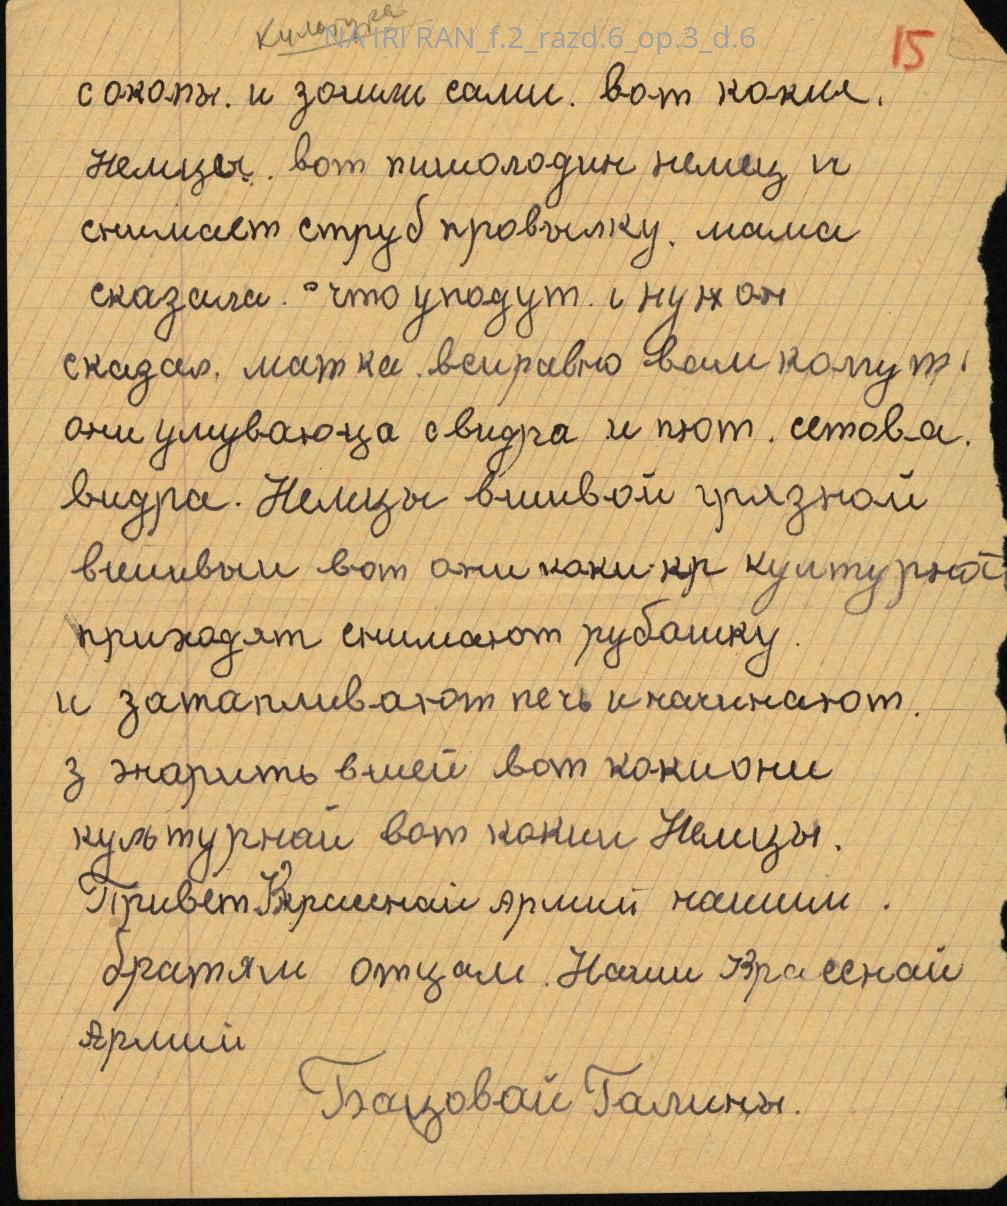 Культура
NA IRI RAN_f.2_razd.6_op.3_d.6
15
с окопы. и зошли сами. вот какия.
Немцы. вот пишолодин немец и
снимает струб провылку. мама
сказала. что упадут. и нужон
скадал. матка. всиравно вам капут.
они умуваюца свидра и пют. сетова.
видра. Немцы вшивой грязной
вшивыи вот они каки кр културной
приходят снимают рубашку.
и затапливают печь и начинают.
з жарить вшей вот каки они
культурнай вот какии Немцы.
Привет Краснай Армий нашим.
братям отцам. Наши Красснай
Армий
Бацовай Галины.